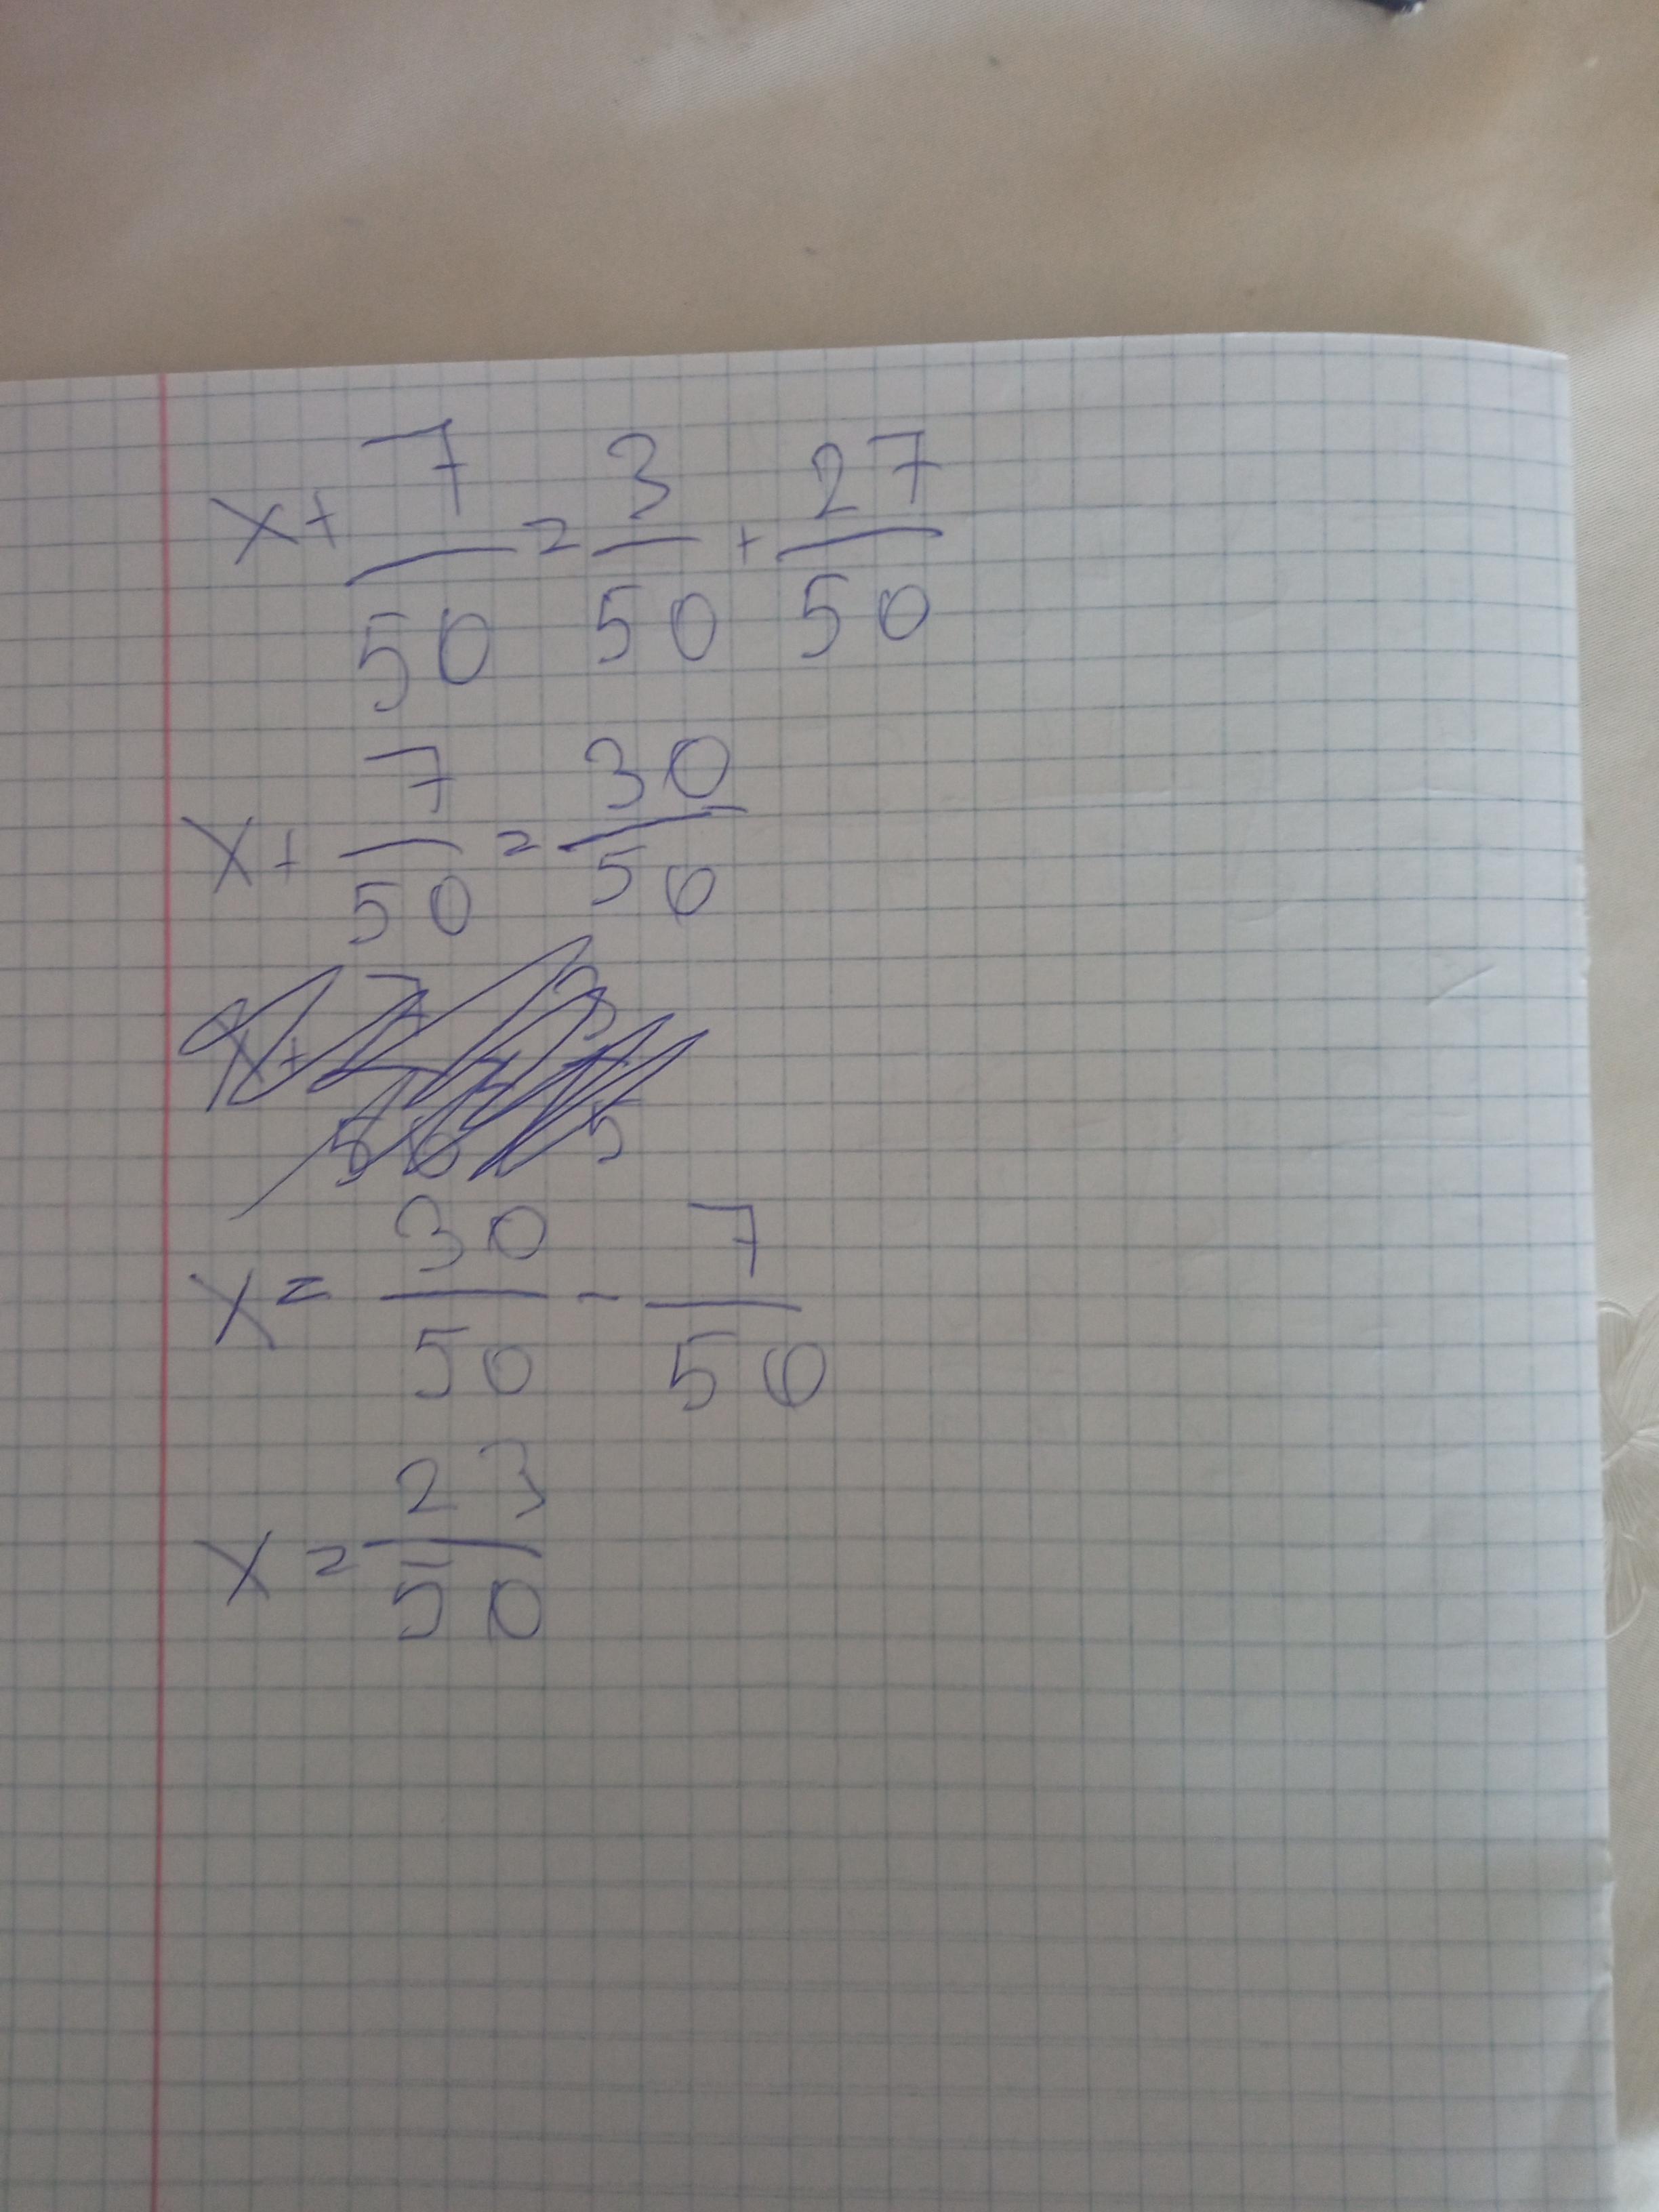 x + 7/50 = 3/50 + 27/50
x + 7/50 = 30/50
x = 30/50 - 7/50
x = 23/50